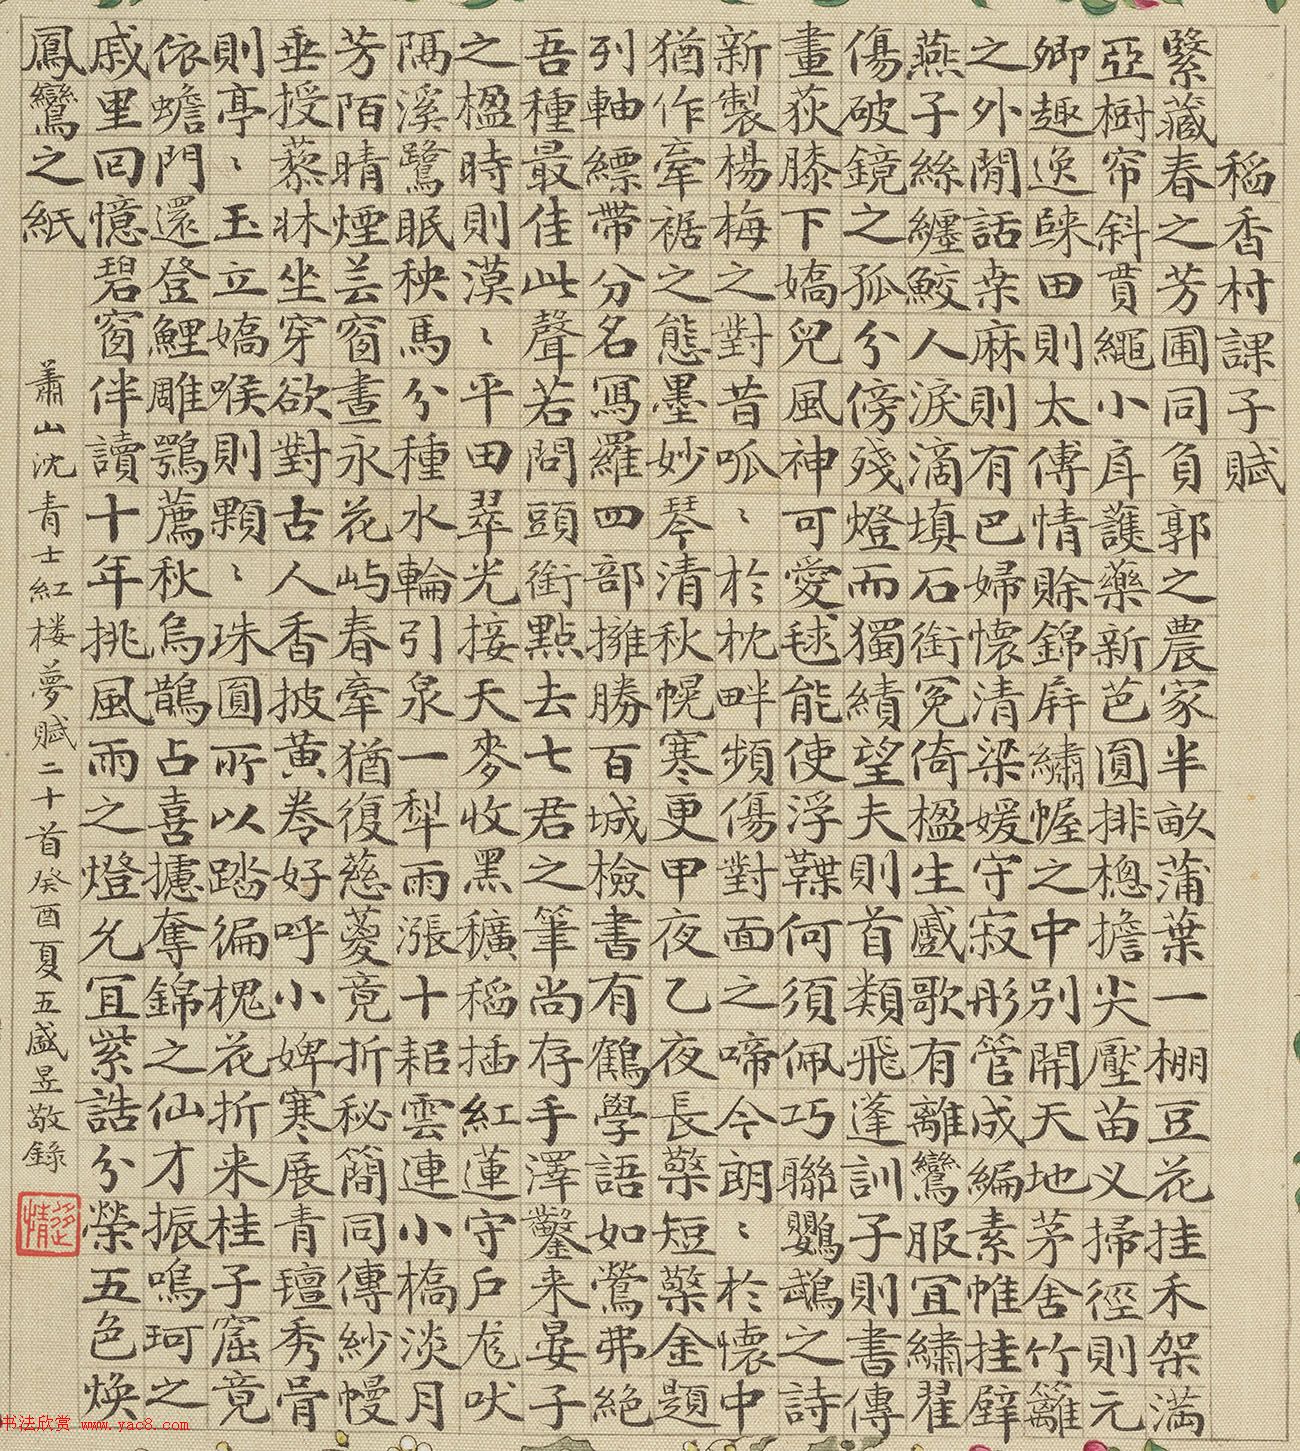 稻香村課子賦
緊藏春之芳圃同負郭之農家半畝蒲葉一棚豆花挂禾架满
亞樹帘斜貫繩小庌護藥新芭圓排樬擔尖壓苗义掃徑則元
卿趣逸踈田則太傅情賒錦屏繡幄之中別開天地茅舍竹籬
之外閒話桒麻則有巴婦懐清梁媛守寂彤管成編素帷挂壁
燕子絲纏鮫人淚滴填石銜冤倚楹生慼歌有離鸞服冝繡翟
傷破鏡之孤分傍殘燈而獨績望夫則首類飛蓬訓子則書傳
畫荻膝下嬌兒風神可愛毬能使浮鞢何須佩巧聯鸚鵡之詩
新製楊梅之對昔呱〻於枕畔頻傷對面之啼今朗〻於懐中
猶作牽裾之態墨妙琴清秋幌寒更甲夜乙夜長檠短檠金題
列軸縹帶分名寫羅四部擁勝百城檢書有鶴學語如鶯弗絕
吾種最佳此聲若問頭銜點去七君之筆尚存手澤鑿来晏子
之楹時則漠〻平田翠光接天麥收黑穬稻插紅蓮守戶尨吠
隔溪鷺眠秧馬分種水輪引泉一犁雨漲十耜雲連小橋淡月
芳陌晴煙芸窗晝永花嶼春牽猶復慈薆竟折秘簡同傳紗幔
垂授蔾牀坐穿欲對古人香披黄卷好呼小婢寒展青氊秀骨
則亭〻玉立嬌喉則顆〻珠圓所以踏徧槐花折来桂子窟竟
依蟾門還登鯉雕鶚薦秋烏鵲占喜攄奪錦之仙才振鳴珂之
戚里回憶碧窗伴讀十年挑風雨之燈允冝紫誥分榮五色煥
鳳鸞之紙
蕭山沈青士紅楼夢賦二十首癸酉夏五盛昱敬錄
書法欣赏 www.yac8.com